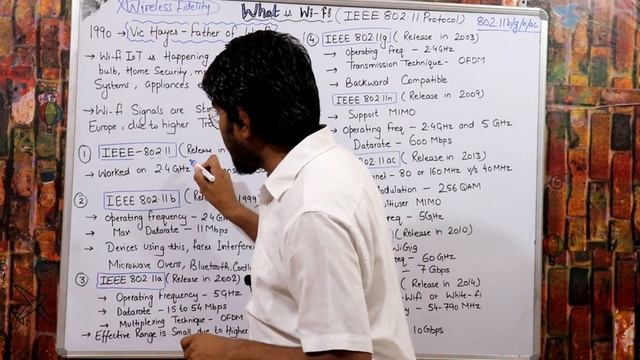 XWireless Fidelity
What is Wi-fi? (IEEE 802.11 Protocol)
802.11b/g/n/ac
1990 → Vic Hayes - Father of
→ Wi-fi IoT is Happening
bulb, Home Security,
Systems, appliances
→ Wi-fi Signals are
Europe, due to higher
① IEEE-802.11 (Release in
→ Worked on 2.4GHz
② IEEE 802.11b 1999
→ Operating frequency - 2.4
→ Max Datarate - 11 Mbps
→ Devices using this, faces
Microwave Ovens, Bluetooth,
③ IEEE 802.11a (Release in 2002)
→ Operating Frequency - 5GHz
→ Datarate - 15 to 54 Mbps
→ Multiplexing Technique - OFDM
→ Effective Range is Small due to Higher
④ IEEE 802.11g (Release in 2003)
→ Operating Freq - 2.4GHz
→ Transmission Technique - OFDM
→ Backward Compatible
IEEE 802.11n (Release in 2009)
→ Support MIMO
→ Operating freq - 2.4GHz and 5 GHz
Datarate - 600 Mbps
802.11 ac (Release in 2013)
- 80 or 160 MHz v/s 40MHz
Modulation - 256 QAM
MIMO
- 5GHz
(Release in 2010)
WiGig
- 60GHz
- 7 Gbps
(Release in 2014)
-Wifi or White-fi
- 54-790 MHz
10 Gbps